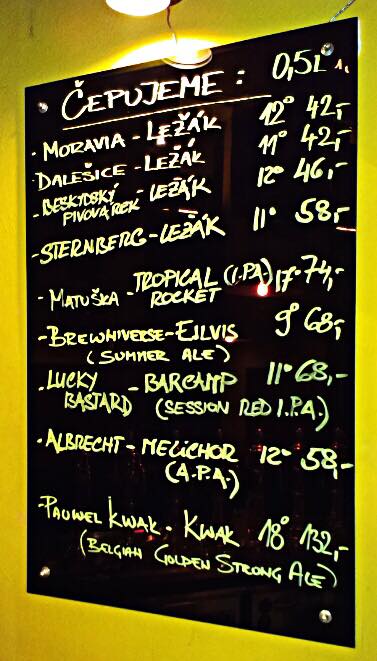 ČEPUJEME: 0,5L
MORAVIA - LEŽÁK 12° 42,-
DALEŠICE - LEŽÁK 11° 42,-
BESKYDSKÝ PIVOVÁREK - LEŽÁK 12° 46,-
STERNBERG - LEŽÁK 11° 58,-
MATUŠKA - TROPICAL (I.P.A.) 17° 74,-
ROCKET
BREWNIVERSE - EJLVIS 9° 68,-
(SUMMER ALE)
LUCKY - BARCAMP 11° 68,-
BASTARD (SESSION RED I.P.A.)
ALBRECHT - MELICHOR 12° 58,-
(A.P.A.)
PAUWEL KWAK - KWAK 18° 132,-
(BELGIAN GOLDEN STRONG ALE)